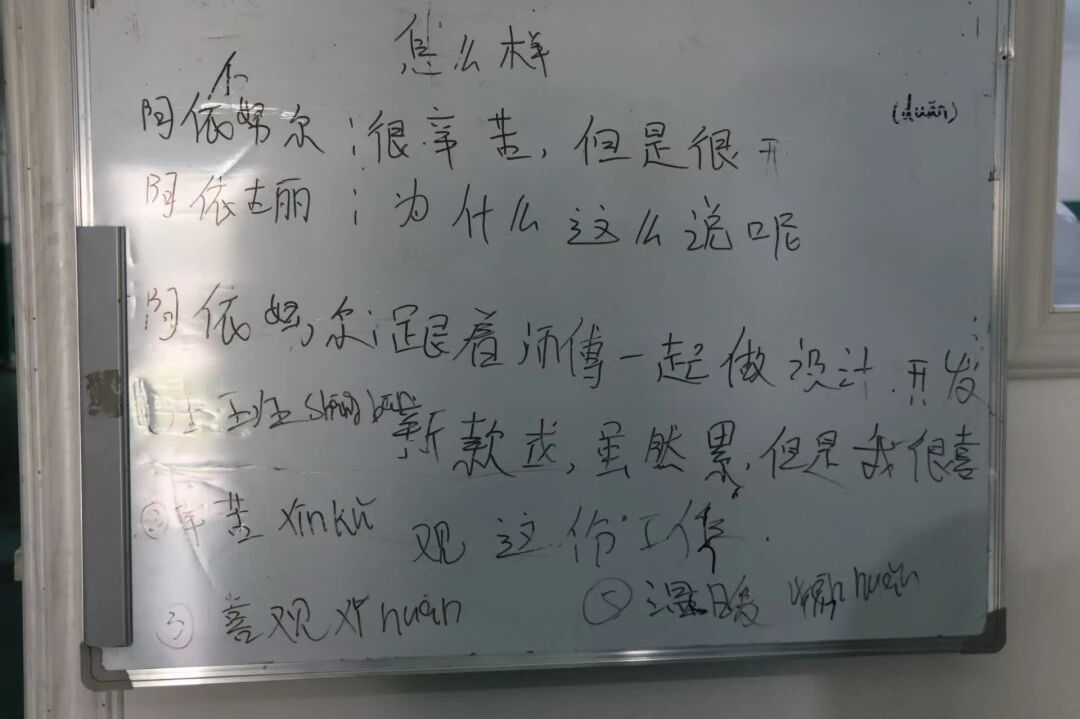 怎么样
个
阿依努尔：很辛苦，但是很开
(duǎn)
阿依古丽：为什么这么说呢
阿依努尔：跟着师傅一起做设计.开发
上班 shàng bān 新款式，虽然累，但是我很喜
②辛苦 xīnkǔ 观这份工作.
③喜观 nuān
⑤温暖 nuǎn